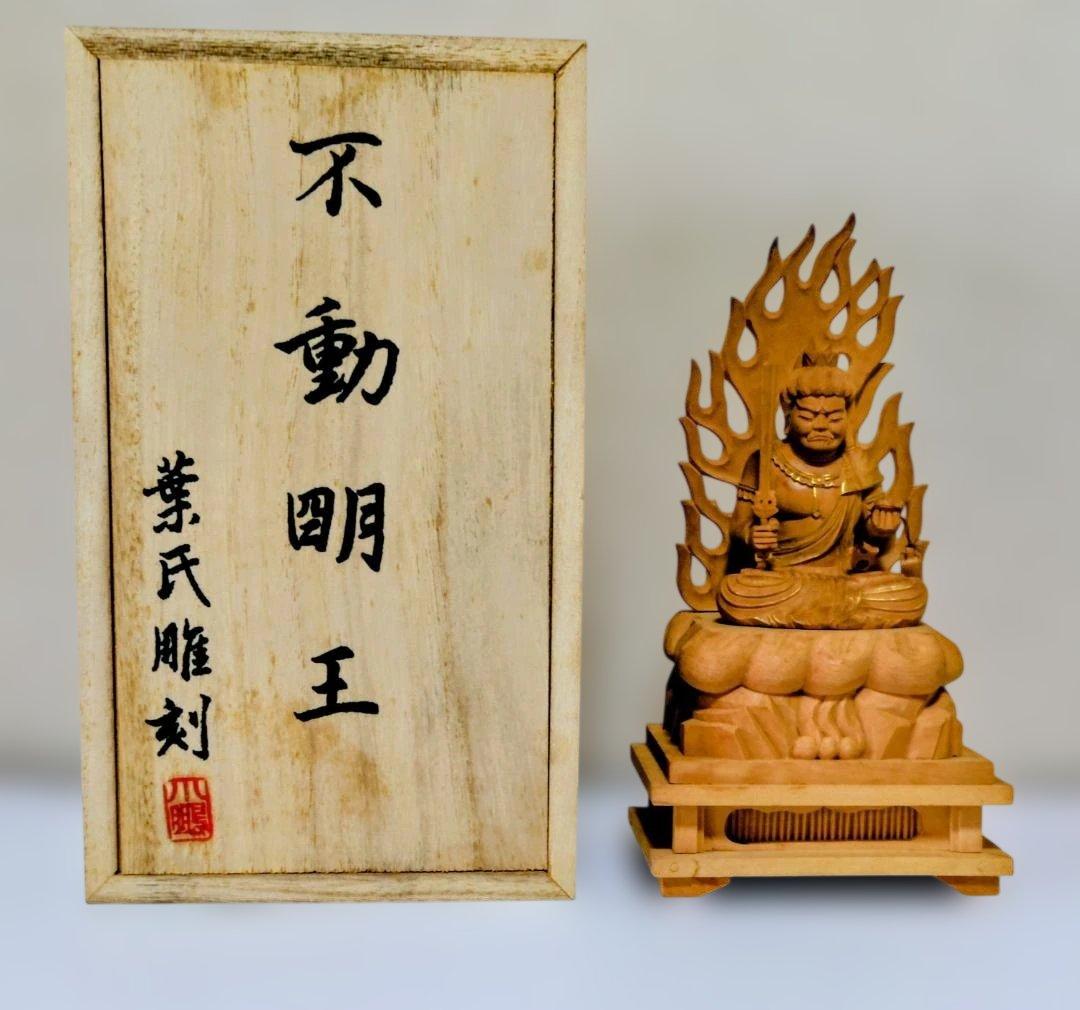 不動明王
葉氏雕刻
大鵬